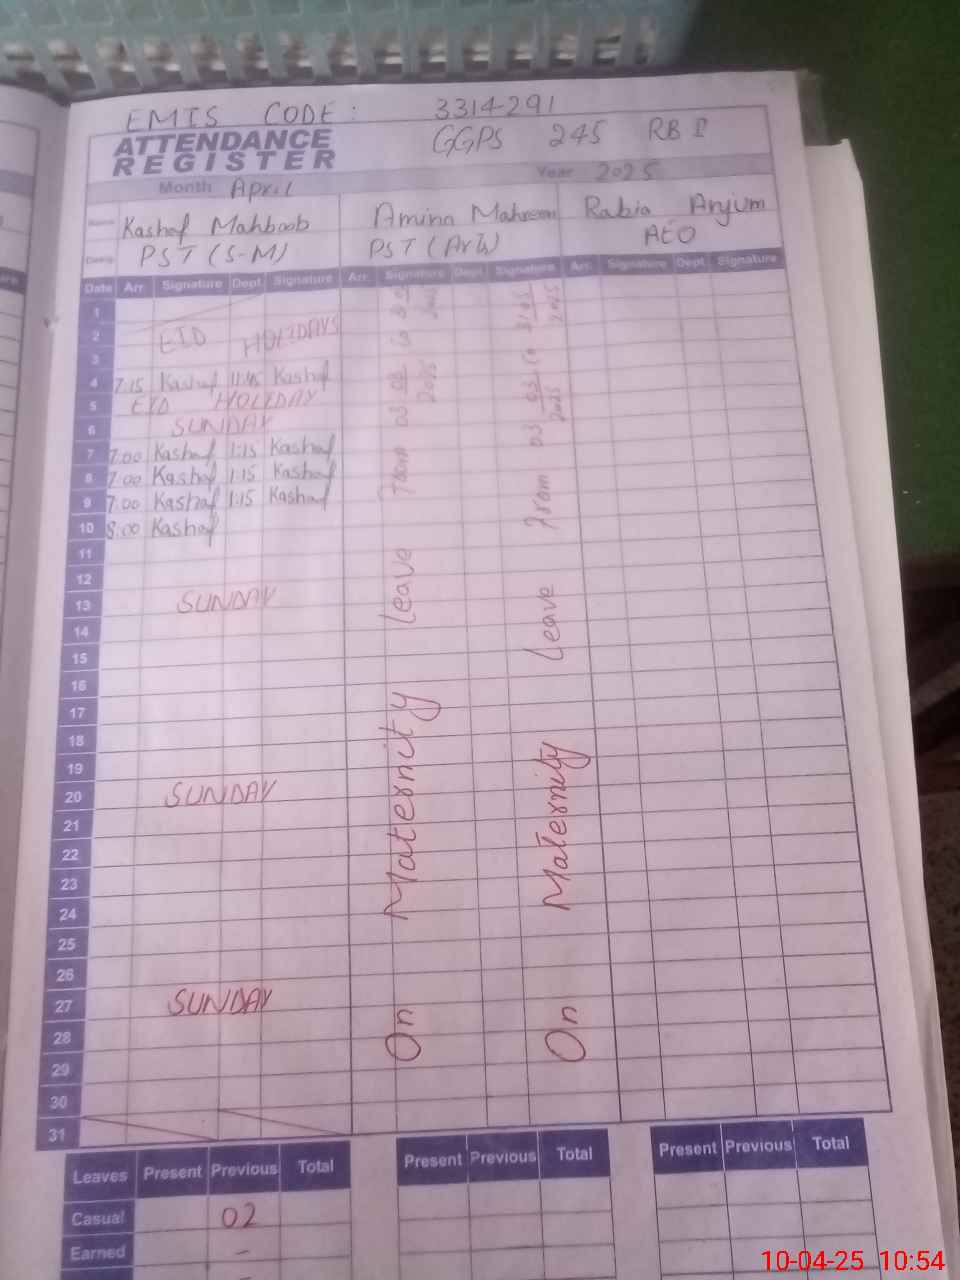 EMIS CODE: 3314-291
ATTENDANCE REGISTER
GGPS 245 RB I
Month April
Year 2025
Name Kashaf Mahboob
Amina Mahreen
Rabia Anjum
Desig: PST (S-M)
PST (Arts)
AEO
Date Arr. Signature Dept. Signature Arr. Signature Dept. Signature Arr. Signature Dept. Signature
1
2 EID HOLIDAYS
3
4 7:15 Kashaf 11:45 Kashaf
5 EID HOLIDAY
6 SUNDAY
7 7:00 Kashaf 1:15 Kashaf
8 7:00 Kashaf 1:15 Kashaf
9 7:00 Kashaf 1:15 Kashaf
10 8:00 Kashaf
11
12
13 SUNDAY
14
15
16
17
18
19
20 SUNDAY
21
22
23
24
25
26
27 SUNDAY
28
29
30
31
On Maternity Leave From 03 03 2025 to
On Maternity Leave From 03 03 2025 to 31 05 2025
Leaves Present Previous Total Present Previous Total Present Previous Total
Casual 02
Earned -
-
10-04-25 10:54